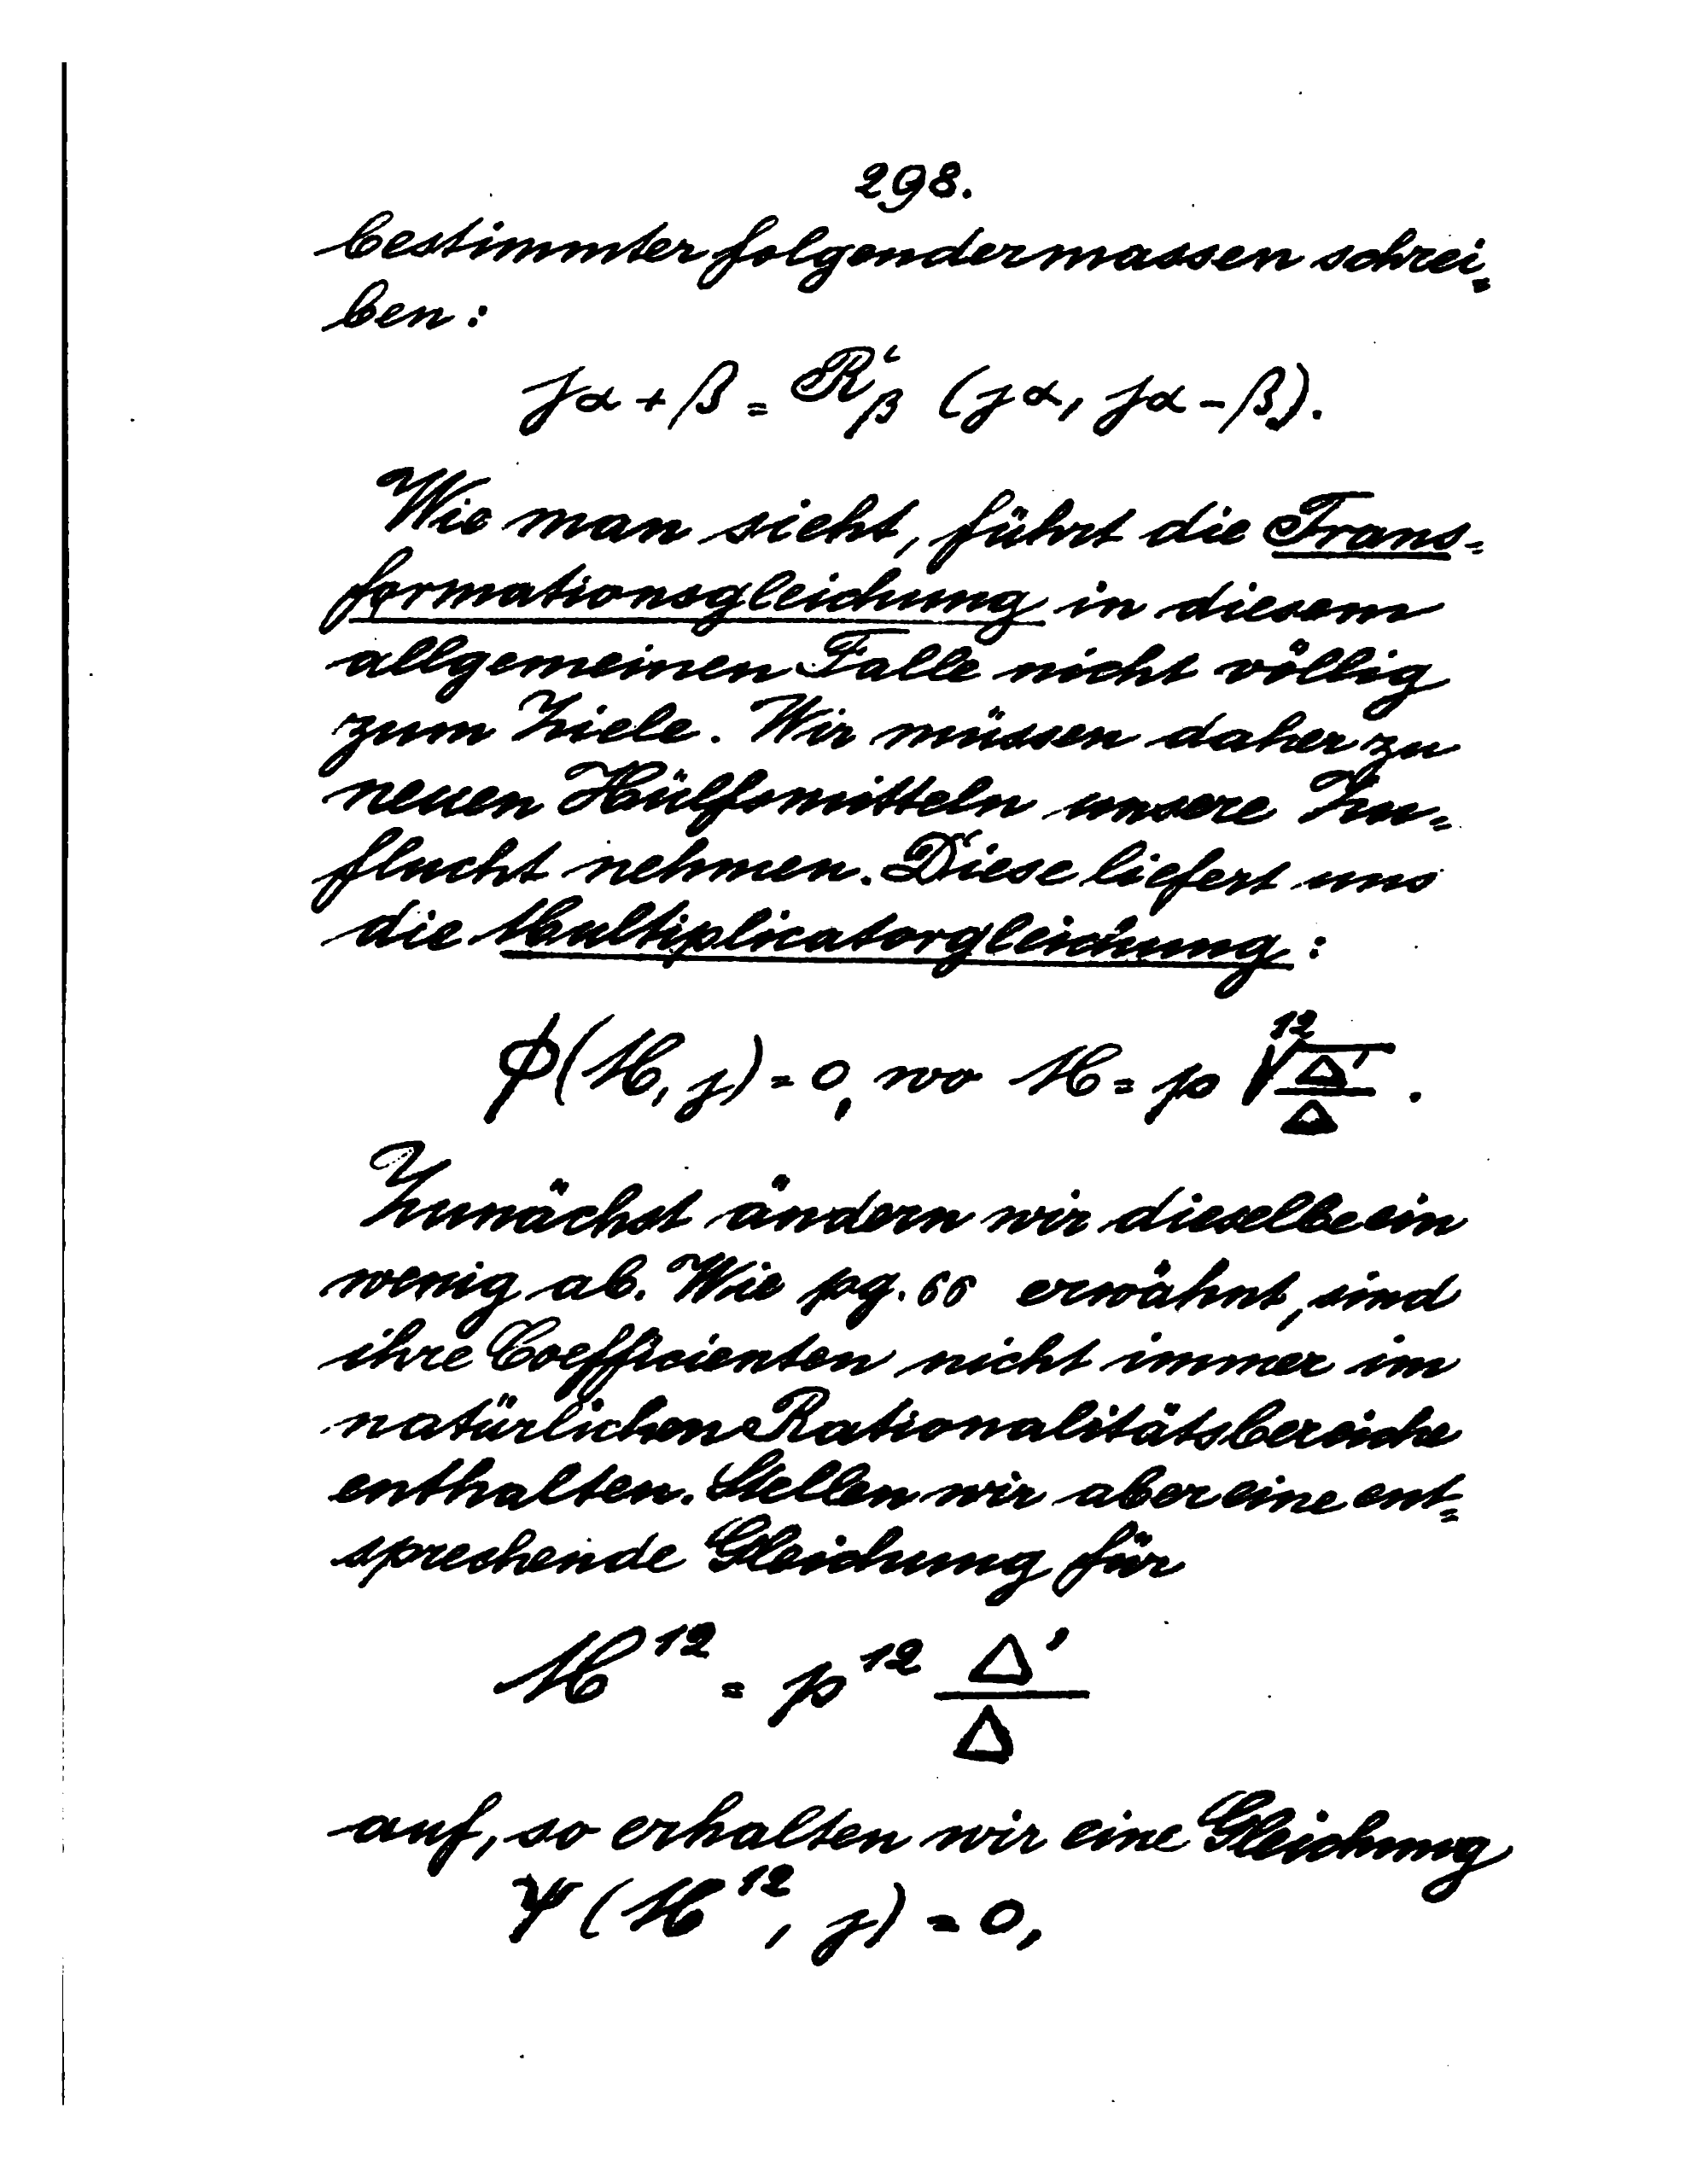 298.
bestimmter folgendermassen schrei=
ben:
jα+β = R'β (jα, jα-β).
Wie man sieht, führt die Trans=
formationsgleichung in diesem
allgemeinen Falle nicht völlig
zum Ziele. Wir müssen daher zu
neuen Hülfsmitteln unsere Zu=
flucht nehmen. Diese liefert uns
die Multiplicatorgleichung:
φ(M, j) = 0, wo M = p \sqrt[12]{\frac{Δ'}{Δ}}.
Zunächst ändern wir dieselbe ein
wenig ab. Wie pg. 66 erwähnt, sind
ihre Coefficienten nicht immer im
natürlichen Rationalitätsbereiche
enthalten. Stellen wir aber eine ent=
sprechende Gleichung für
M^{12} = p^{12} \frac{Δ'}{Δ}
auf, so erhalten wir eine Gleichung
Ψ(M^{12}, j) = 0,